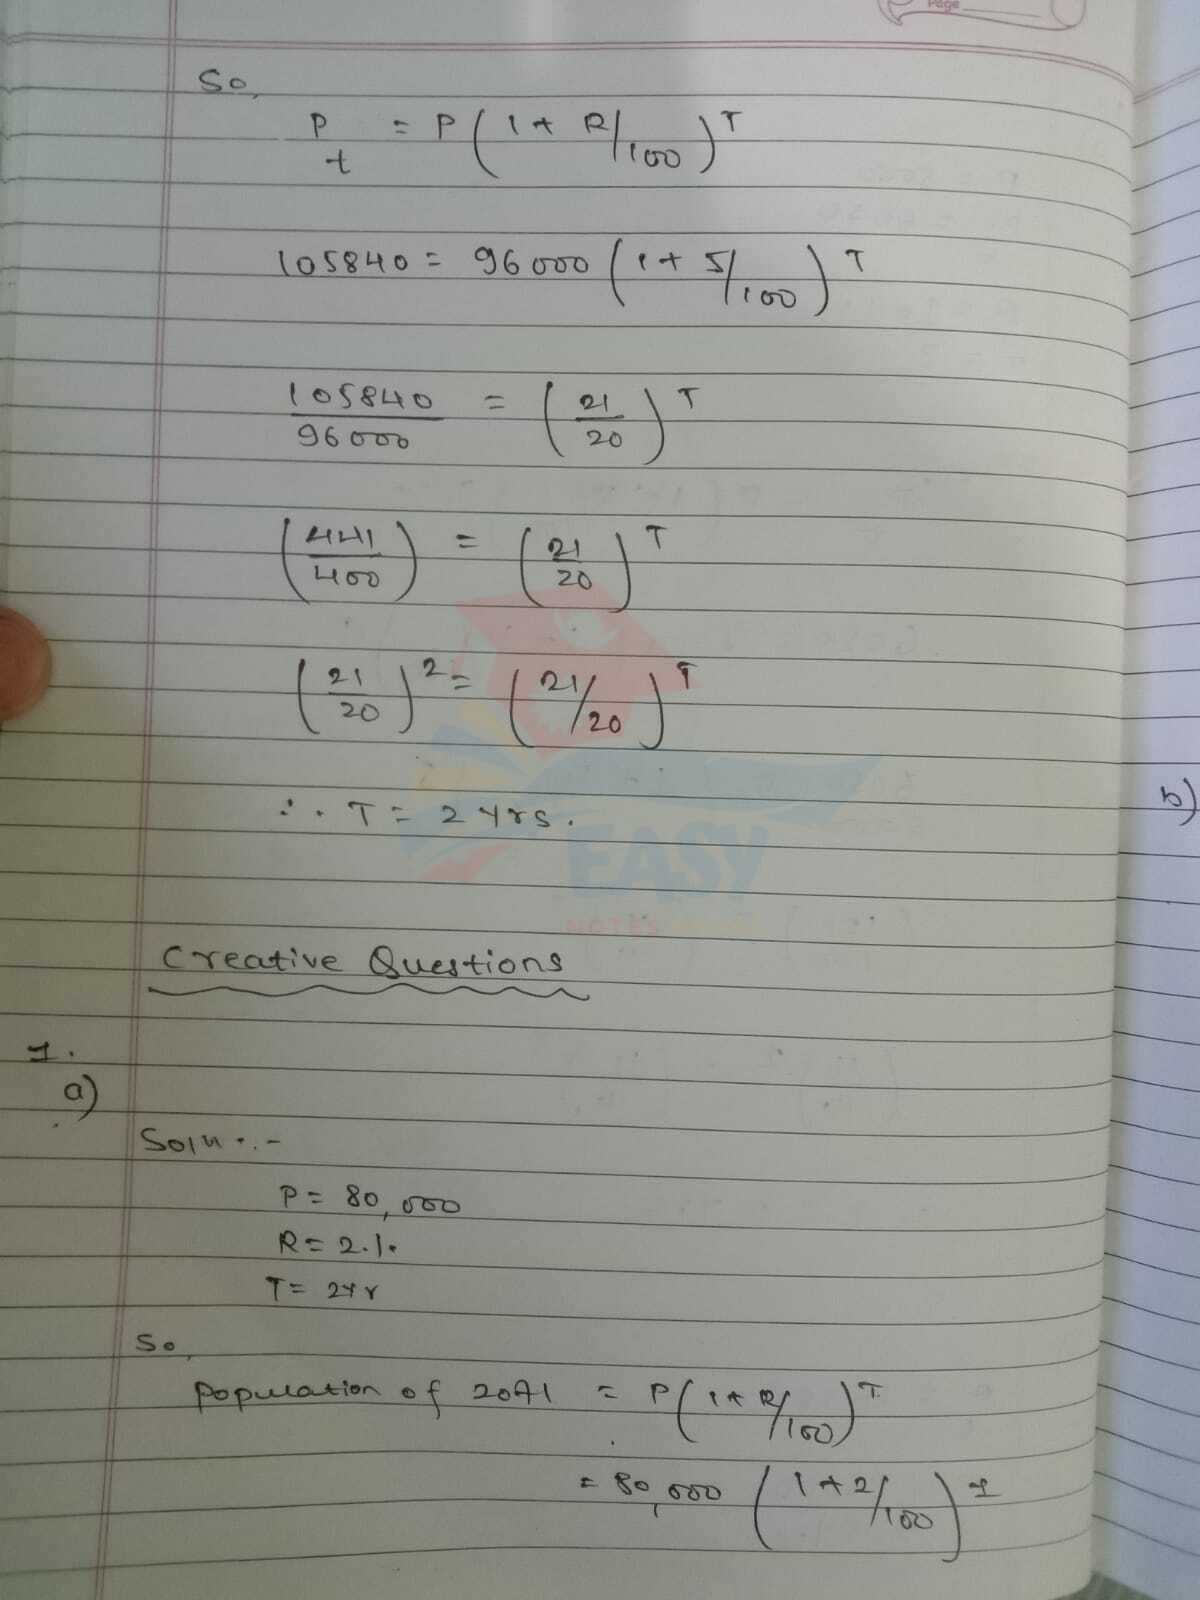 Page
So,
P/t = P(1 + R/100)^T
105840 = 96000 (1 + 5/100)^T
105840/96000 = (21/20)^T
(441/400) = (21/20)^T
(21/20)^2 = (21/20)^T
∴ T = 2 yrs.
EASY
NOTES
Creative Questions
1.
a)
Soln :-
P = 80,000
R = 2%
T = 2yr
So,
Population of 2071 = P(1 + R/100)^T
= 80,000 (1 + 2/100)^1
b)